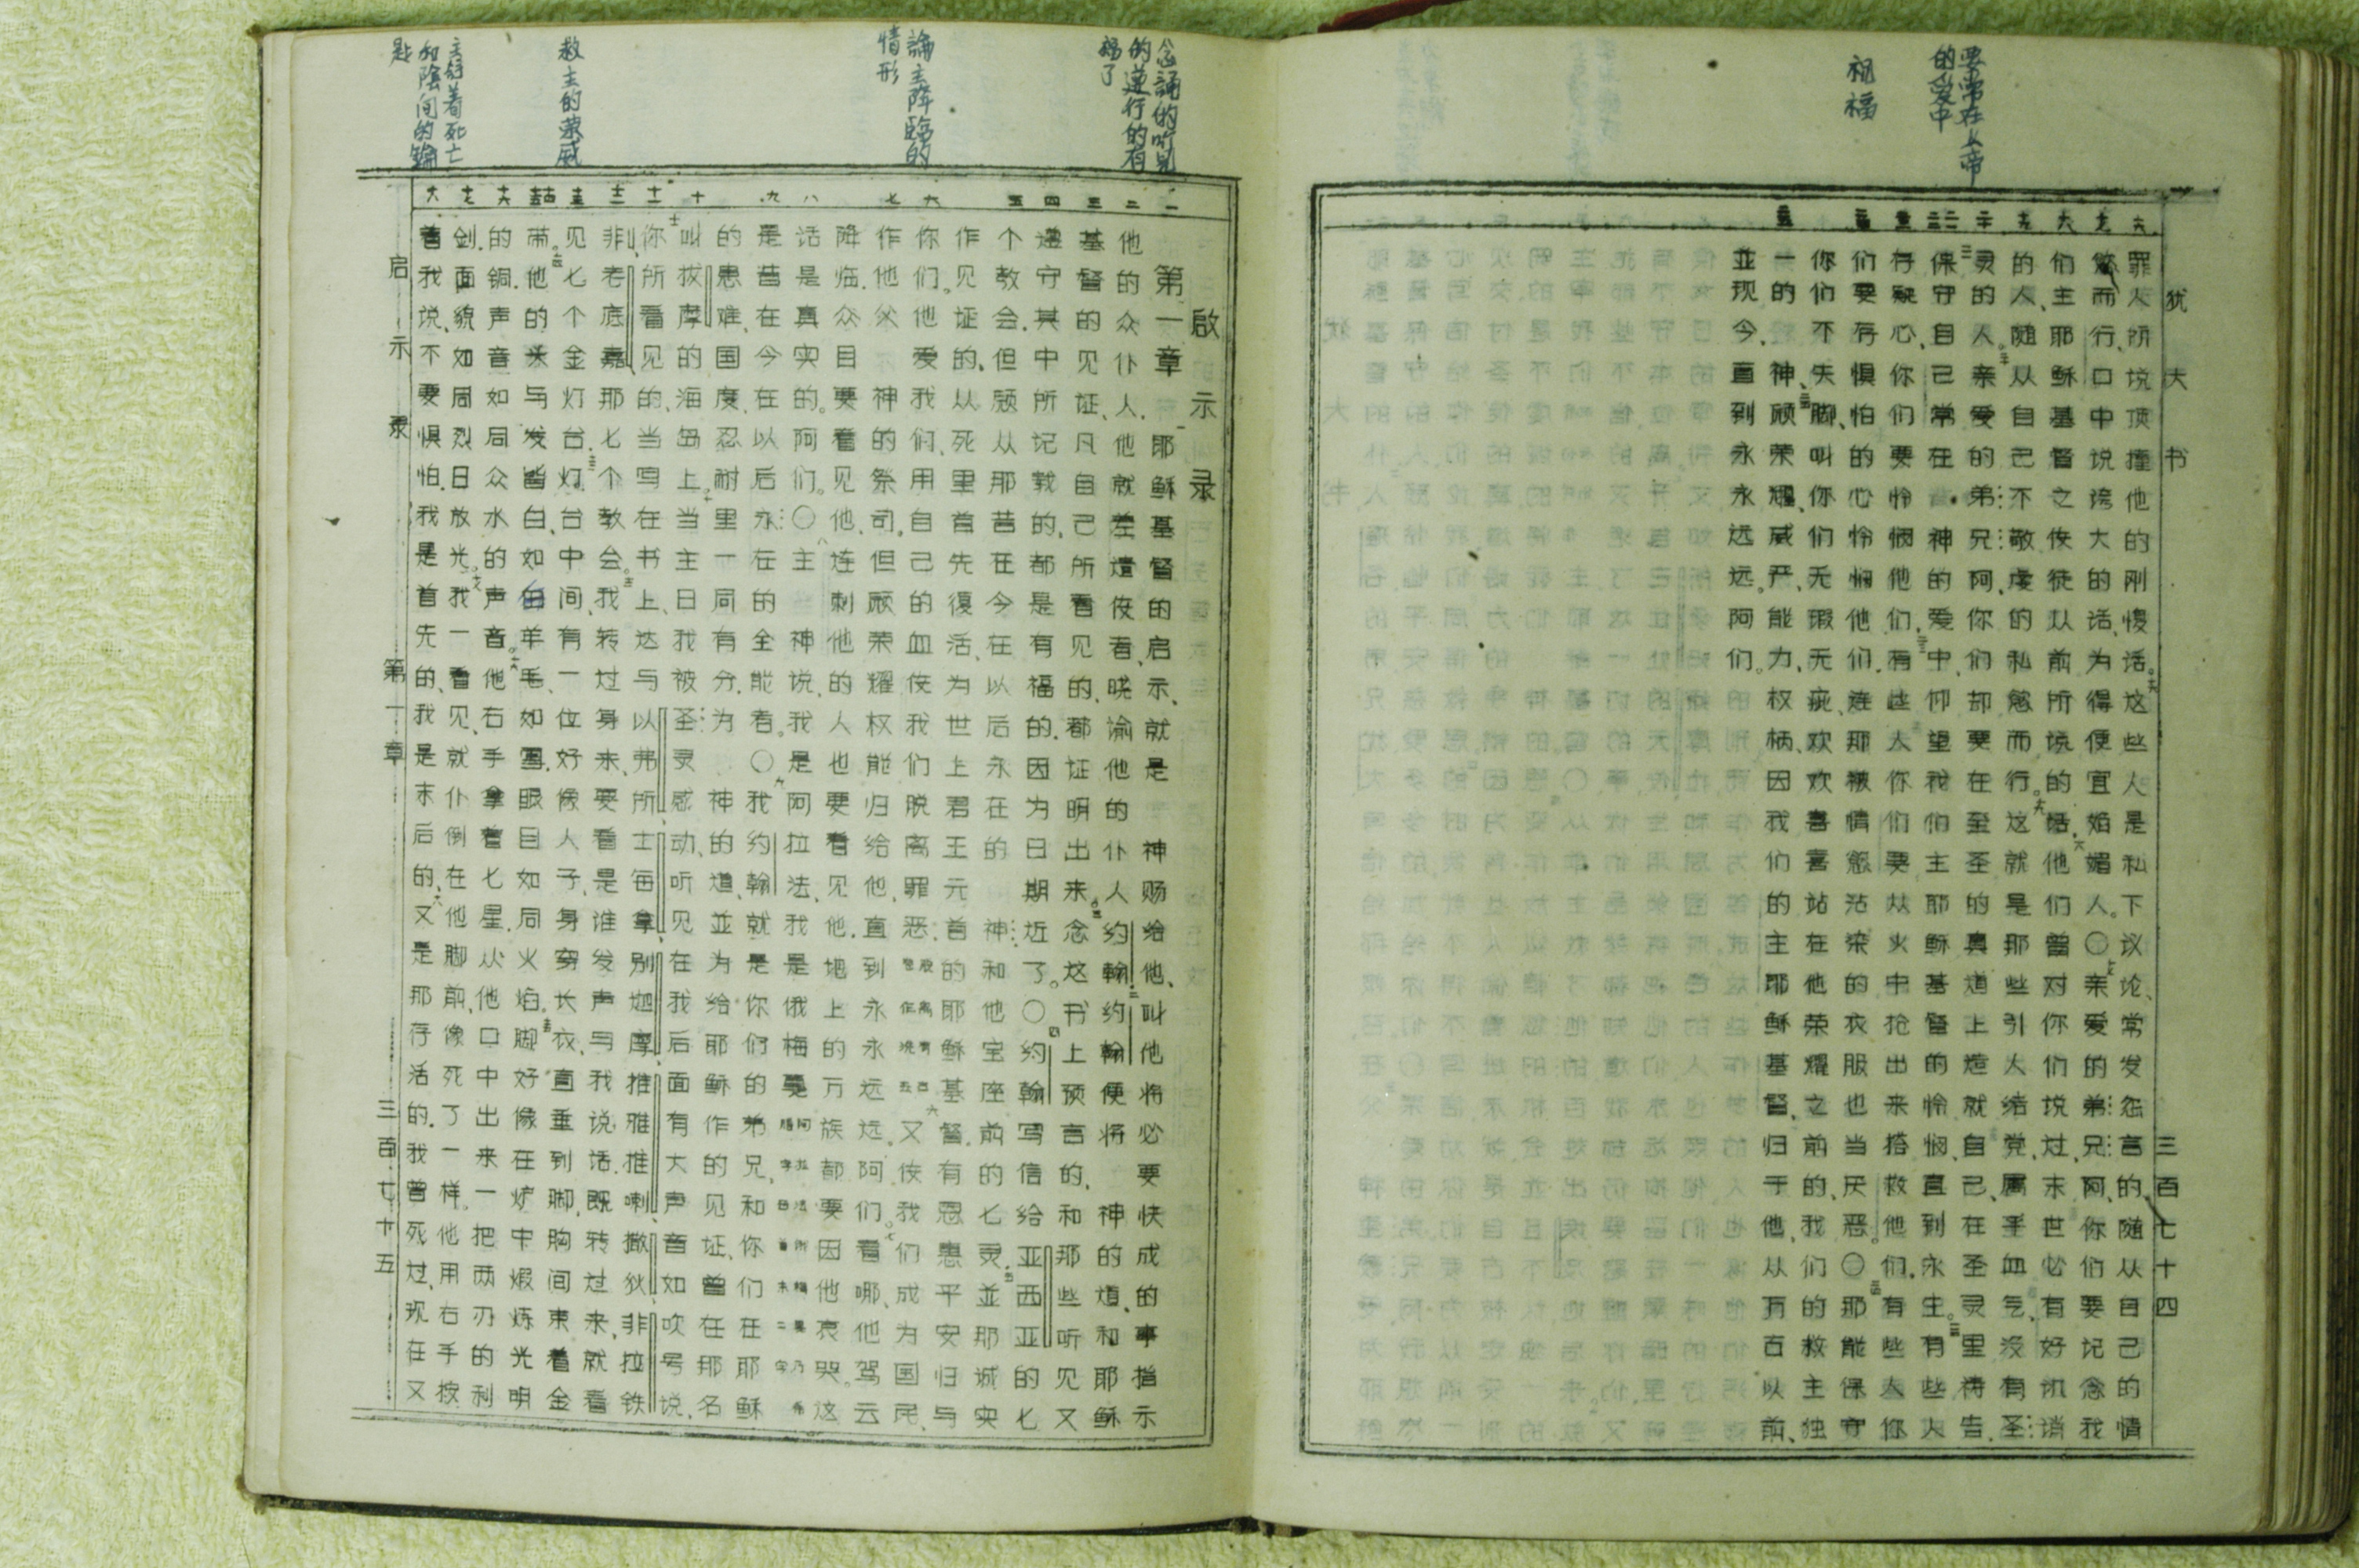 要常在上帝
的爱中
祝福
犹大书 三百七十四
罪人所说顶撞他的刚愎话。这些人是私下议论、常发怨言的、随从自己的情
慾而行、口中说誇大的话、为得便宜焰媚人。〇亲爱的弟兄阿、你们要记念我
们主耶稣基督之使徒从前所说的话、他们曾对你们说过、末世必有好讥诮
的人、随从自己不敬虔的私慾而行。这就是那些引人结党、属乎血气、没有圣
灵的人。亲爱的弟兄阿、你们却要在至圣的真道上造就自己、在圣灵里祷告、
保守自己常在神的爱中、仰望我们主耶稣基督的怜悯、直到永生。有些人
存疑心、你们要怜悯他们、有些人你们要从火中抢出来搭救他们、有些人你
们要存惧怕的心怜悯他们、连那被情慾沾染的衣服也当厌恶。〇那能保守
你们不失脚、叫你们无瑕、无疵、欢欢喜喜站在他荣耀之前的、我们的救主独
一的神、愿荣耀威严、能力、权柄、因我们的主耶稣基督、归于他、从万古以前、
並现今、直到永永远远。阿们。
念誦的听見
的遵行的有
福了
論主降臨的
情形
救主的荣威
着死亡
和陰间的鑰
匙
啟示录
第一章
耶稣基督的启示、就是神赐给他、叫他将必要快成的事指示
他的众仆人、他就差遣使者、晓谕他的仆人约翰约翰便将神的道、和耶稣
基督的见证、凡自己所看见的、都证明出来。念这书上预言的、和那些听见又
遵守其中所记载的、都是有福的、因为日期近了。〇约翰写信给亚西亚的七
个教会、但愿从那昔在今在以后永在的神和他宝座前的七灵、並那诚实
作见证的、从死里首先復活、为世上君王元首的耶稣基督、有恩惠平安归与
你们。他爱我们、用自己的血使我们脱离罪恶、脱离有古卷作洗去又使我们成为国民、
作他父神的祭司、但愿荣耀权能归给他、直到永永远远。阿们。看哪、他驾云
降临、众目要看见他、连刺他的人也要看见他、地上的万族都要因他哀哭。这
话是真实的。阿们。〇主神说、我是阿拉法、我是俄梅戛阿拉法俄梅戛乃希腊字母首末二字
是昔在今在以后永在的全能者。〇我约翰就是你们的弟兄、和你们在耶稣
的患难、国度、忍耐里一同有分、为神的道、並为给耶稣作的见证、曾在那名
叫拔摩的海岛上。当主日我被圣灵感动、听见在我后面有大声音如吹号说、
你所看见的、当写在书上、达与以弗所、士每拿、别迦摩、推雅推喇、撒狄、非拉铁
非、老底嘉那七个教会。我转过身来、要看是谁发声与我说话、既转过来、就看
见七个金灯台。灯台中间、有一位好像人子、身穿长衣、直垂到脚、胸间束着金
带。他的头与发皆白、如白羊毛、如雪、眼目如同火焰。脚好像在炉中煅炼光明
的铜、声音如同众水的声音。他右手拿着七星、从他口中出来一把两刃的利
剑、面貌如同烈日放光。我一看见、就仆倒在他脚前、像死了一样。他用右手按
着我说、不要惧怕、我是首先的、我是末后的、又是那存活的、我曾死过、现在又
启示录 第一章 三百七十五